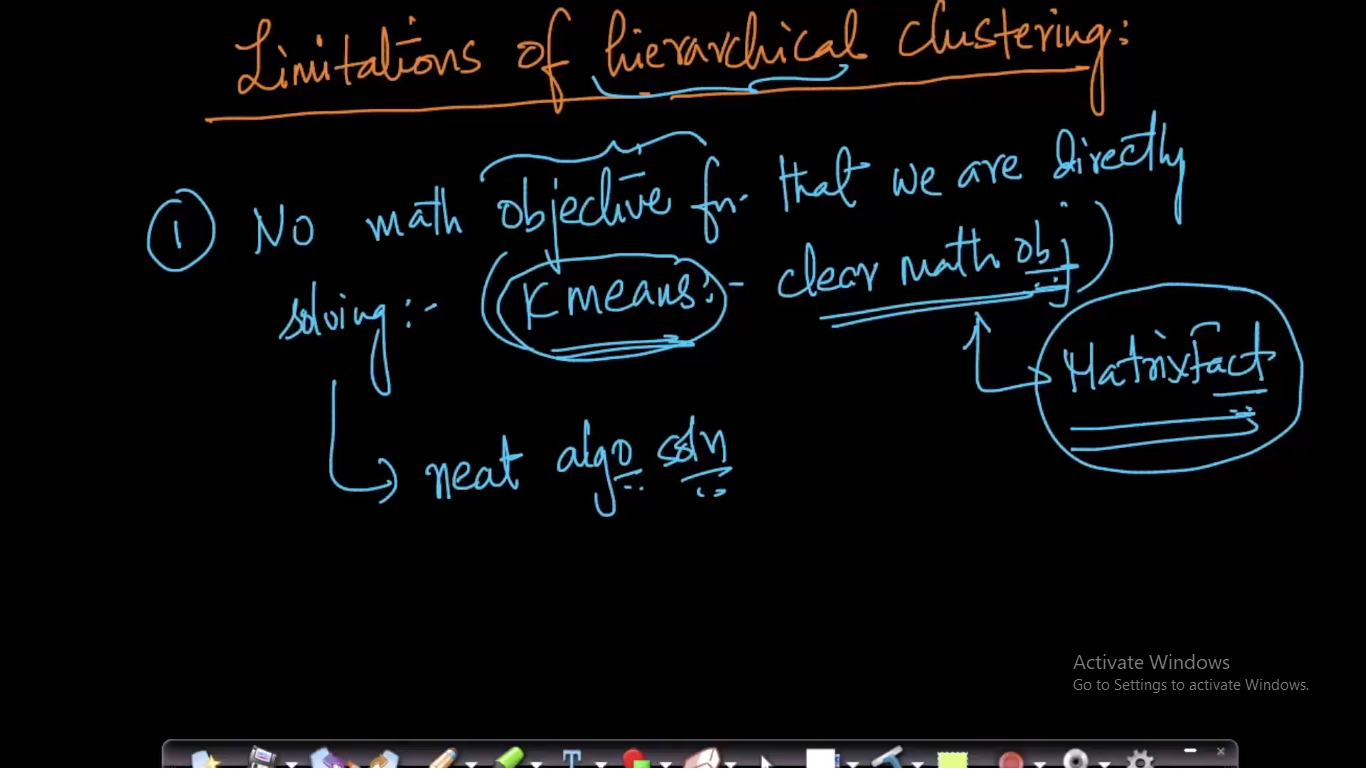 Limitations of hierarchical clustering:
① No math objective fn. that we are directly
solving:- (K means:- clear math obj)
Matrix Fact
→ neat algo soln
Activate Windows
Go to Settings to activate Windows.